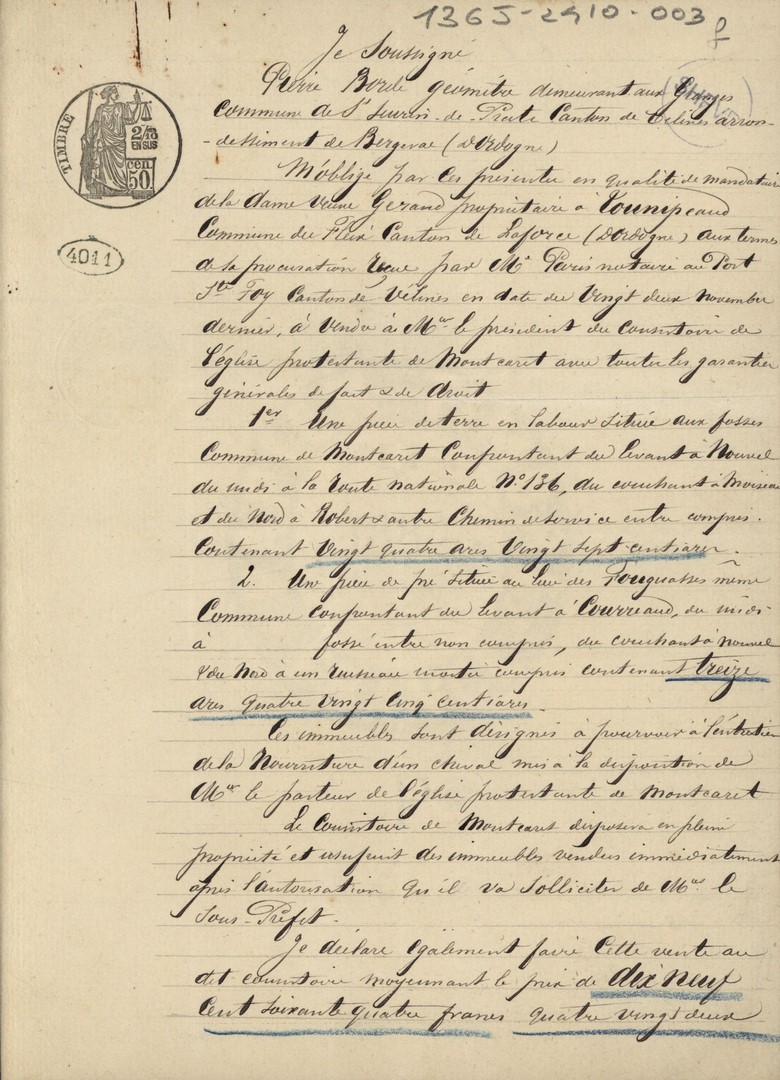 1365-2910-003
Je Soussigné
Pierre Borde géomètre demeurant aux Granges
Commune de St Seurin-de-Prats Canton de Velines arron-
-dissiment de Bergerac (Dordogne)
M'oblige par ces présentes en qualité de mandataire
de la dame veuve Gerand propriétaire à
Commune du Fleix Canton de Laforce (Dordogne) aux termes
de la procuration reçue par Me Paris notaire au Port
Ste Foy Canton de Vélines en date du vingt deux novembre
dernier, à vendre à Mr le président du consistoire de
l'église protestante de Montcaret avec toutes les garanties
générales de fait & de droit
1er Une pièce de terre en labour située aux fosses
Commune de Montcaret Confrontant du levant à Nouvel
du midi à la route nationale No 136, du couchant à Moiseau
et du Nord à Robert & autre Chemin de service entre compris.
Contenant vingt quatre ares vingt sept centiares.
2. Une pièce de pré située au lieu des Fouguasses même
Commune confrontant du levant à Courreaud, du midi
à fossé entre non compris, du couchant à nouvel
& du Nord à un ruisseau moitié compris contenant treize
ares quatre vingt cinq centiares.
Ces immeubles sont désignés à pourvoir à l'entretien
de la Nourriture d'un cheval mis à la disposition de
Mr le pasteur de l'église protestante de Montcaret
Le Consistoire de Montcaret disposera en pleine
propriété et usufruit des immeubles vendus immédiatement
après l'autorisation qu'il va solliciter de Mr le
Sous-Préfet.
Je déclare également faire cette vente au
dit consistoire moyennant le prix de dix neuf
Cent soixante quatre francs quatre vingt deux
TIMBRE
2/10
EN SUS
50 cen
4011